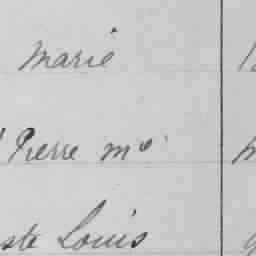 Marie
Pierre me
ste Louis